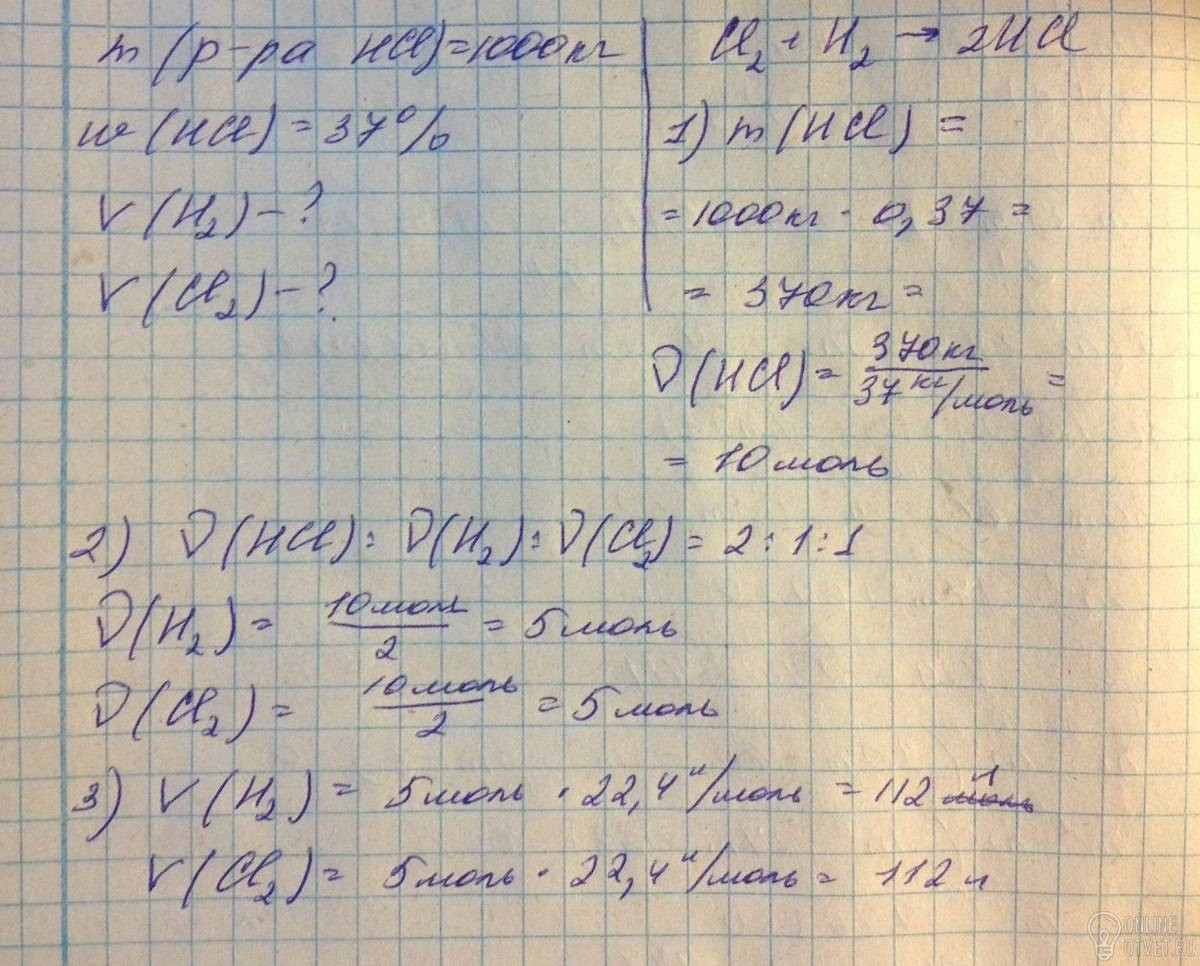 m (р-ра HCl)=1000кг
w (HCl) = 37%
V (H₂) - ?
V (Cl₂) - ?
Cl₂ + H₂ → 2HCl
1) m (HCl) =
= 1000кг · 0,37 =
= 370кг =
ν (HCl) = 370кг / 37 кг/моль =
= 10 моль
2) ν (HCl) : ν (H₂) : ν (Cl₂) = 2 : 1 : 1
ν (H₂) = 10 моль / 2 = 5 моль
ν (Cl₂) = 10 моль / 2 = 5 моль
3) V (H₂) = 5 моль · 22,4 л/моль = 112 л
V (Cl₂) = 5 моль · 22,4 л/моль = 112 л
ONLINE
OTVET.RU